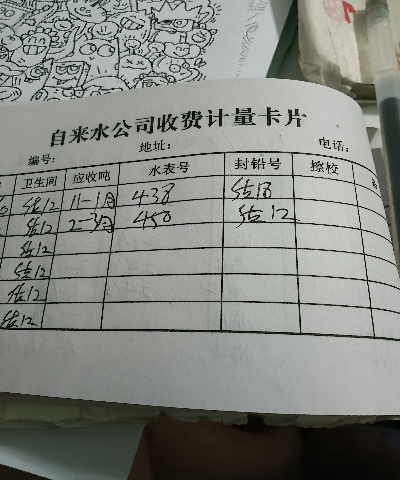 自来水公司收费计量卡片
编号: 地址: 电话:
卫生间 应收吨 水表号 封铅号 擦校
结12 11-1月 438 结
结12 2-3月 450 结12
结12
结12
结12
结12